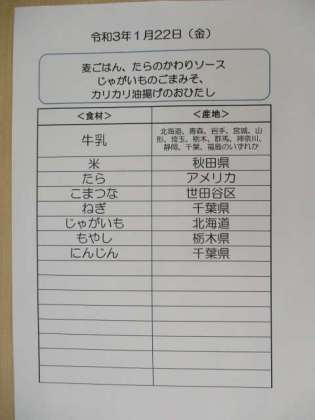 令和3年1月22日（金）
麦ごはん、たらのかわりソース
じゃがいものごまみそ、
カリカリ油揚げのおひたし
＜食材＞ ＜産地＞
牛乳 北海道、青森、岩手、宮城、山
形、埼玉、栃木、群馬、神奈川、
静岡、千葉、福島のいずれか
米 秋田県
たら アメリカ
こまつな 世田谷区
ねぎ 千葉県
じゃがいも 北海道
もやし 栃木県
にんじん 千葉県